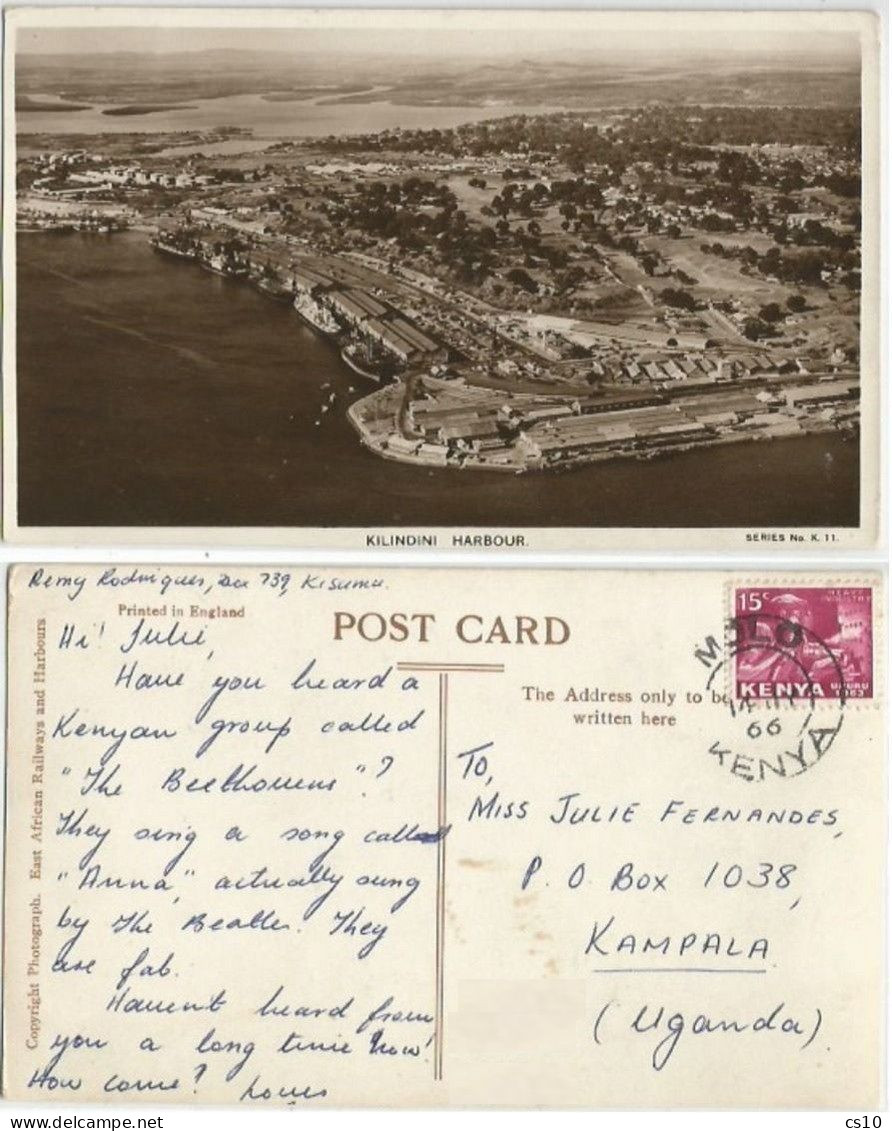 KILINDINI HARBOUR.
SERIES No. K. 11.
Remy Rodrigues, Box 739, Kisumu.
Printed in England
POST CARD
Copyright Photograph. East African Railways and Harbours
Hi! Julie,
Have you heard a
Kenyan group called
"The Beethovens"?
They sing a song called
"Anna", actually sung
by The Beatles. They
are fab.
Havent heard from
you a long time now!
How come? Loves
The Address only to be
written here
15c HEAVY INDUSTRY
KENYA UHURU 1963
MOLO
66
KENYA
To,
MISS JULIE FERNANDES,
P. O. BOX 1038,
KAMPALA
(Uganda)
cs10